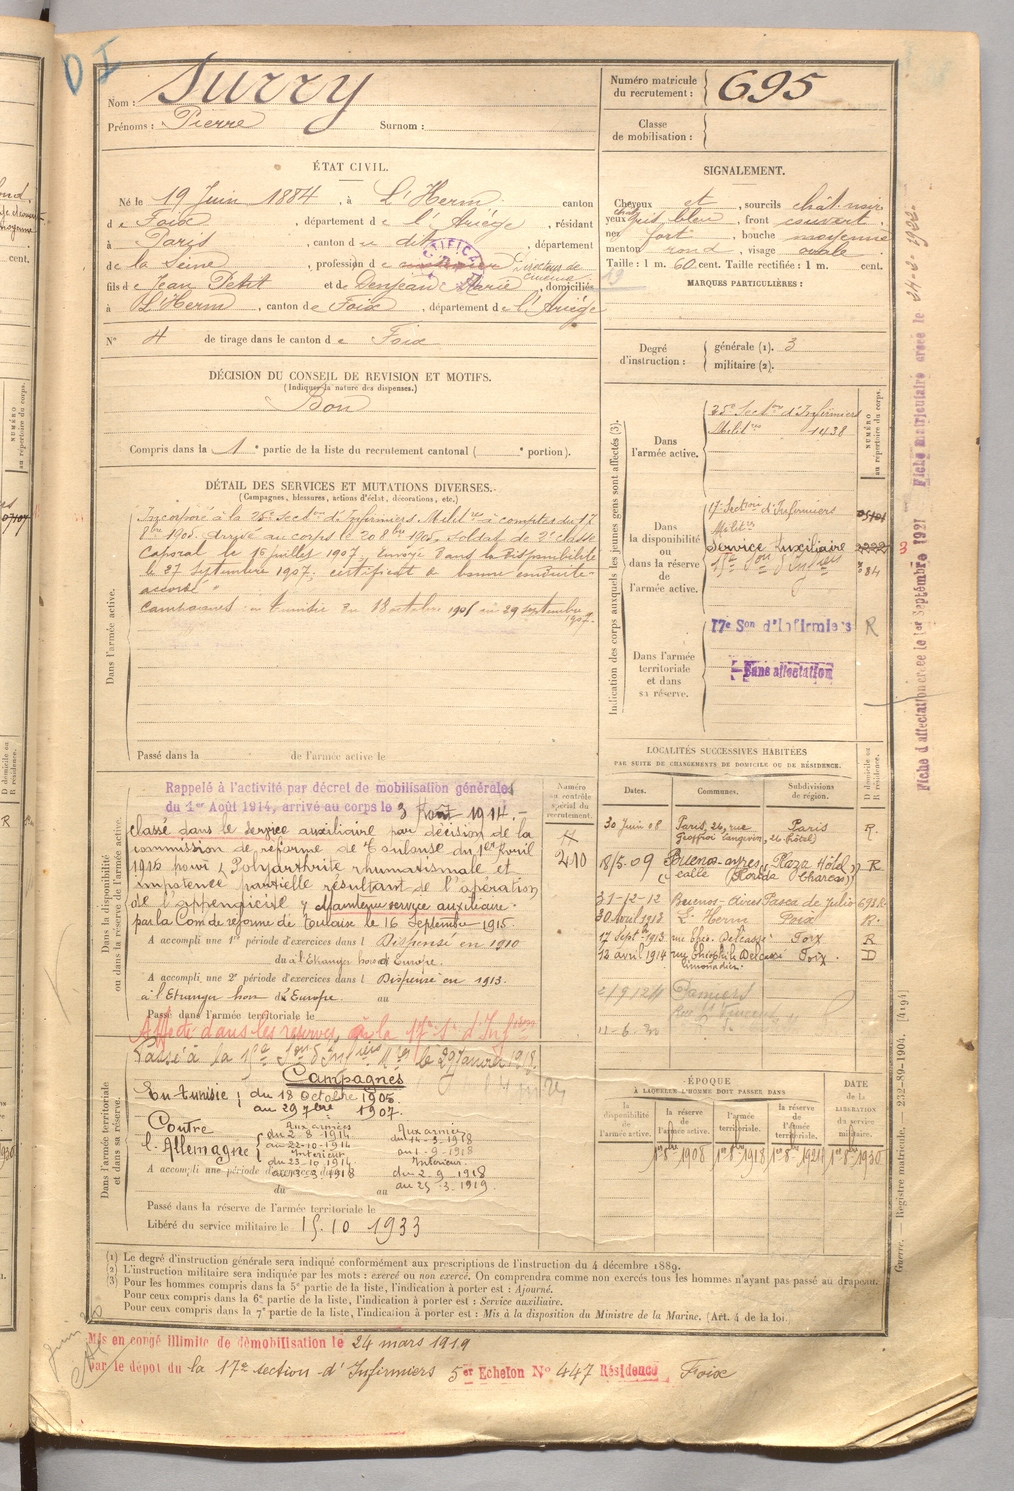 D I
Nom : Surry
Prénoms : Pierre Surnom :
Numéro matricule du recrutement : 695
Classe de mobilisation :
ÉTAT CIVIL.
Né le 19 Juin 1884, à L'Herm canton
de Foix, département de l'Ariège, résidant
à Paris, canton du dit, département
de la Seine, profession de Directeur de cinéma
fils de Jean Petit et de Denjean Marie, domiciliés
à L'Herm, canton de Foix, département de l'Ariège
N° 4 de tirage dans le canton de Foix
SIGNALEMENT.
Cheveux et sourcils chât. noir
yeux gris bleu, front couvert
nez fort, bouche moyenne
menton rond, visage ovale
Taille : 1 m. 60 cent. Taille rectifiée : 1 m. cent.
MARQUES PARTICULIÈRES :
Degré d'instruction : générale (1). 3
militaire (2).
DÉCISION DU CONSEIL DE REVISION ET MOTIFS.
(Indiquer la nature des dispenses.)
Bon
Compris dans la 1e partie de la liste du recrutement cantonal ( e portion).
DÉTAIL DES SERVICES ET MUTATIONS DIVERSES.
(Campagnes, blessures, actions d'éclat, décorations, etc.)
Dans l'armée active.
Incorporé à la 25e Section d'Infirmiers Militres à compter du 17
8bre 1905. Arrivé au corps le 20 8bre 1905, soldat de 2e classe
Caporal le 16 juillet 1907, envoyé dans la disponibilité
le 27 Septembre 1907, certificat de bonne conduite
accordé
Campagnes : en Tunisie du 18 octobre 1905 au 29 septembre
1907.
Passé dans la de l'armée active le
Indication des corps auxquels les jeunes gens sont affectés (3).
NUMÉRO au répertoire du corps.
Dans l'armée active.
25e Section d'Infirmiers
Militres 1438
Dans la disponibilité ou dans la réserve de l'armée active.
17e Section d'Infirmiers
Militres
Service Auxiliaire
Dans l'armée territoriale et dans sa réserve.
17e Son d'Infirmiers R
Sans affectation
Fiche d'affectation créée le 1er Septembre 1927
Fiche matriculaire créée le
LOCALITÉS SUCCESSIVES HABITÉES
PAR SUITE DE CHANGEMENTS DE DOMICILE OU DE RÉSIDENCE.
Dates. Communes. Subdivisions de région. D domicile ou R résidence.
30 Juin 08 Paris, 26, rue Geoffroi Langevin, 26 (hôtel) Paris R.
18/5-09 Buenos-ayres (Plaza Hôtel) R
calle Florida Charcas
31-12-12 Buenos-Aires Pasca de Julio 698 R.
30 avril 1913 L'Herm Foix R.
17 Sept. 1913 rue Théo. Delcassé Foix R
12 avril 1914 rue Théophile Delcassé Foix. D
limonadier.
Pamiers
11-6-30
Dans la disponibilité ou dans la réserve de l'armée active.
Numéro au contrôle spécial du recrutement.
210
Rappelé à l'activité par décret de mobilisation générale
du 1er Août 1914, arrivé au corps le 3 Août 1914.
classé dans le service auxiliaire par décision de la
commission de réforme de Toulouse du 1er avril
1915 pour « Polyarthrite rhumatismale et
impotence partielle résultant de l'opération
de l'appendicite » Maintenu service auxiliaire
par la Com de réforme de Toulouse le 16 Septembre 1915.
A accompli une 1re période d'exercices dans l Dispensé en 1910
du à l'Etranger hors d'Europe. au
A accompli une 2e période d'exercices dans l Dispensé en 1913.
à l'Etranger hors d'Europe. au
Passé dans l'armée territoriale le
Affecté dans les réserves, à la 17e Son d'Infres
Dans l'armée territoriale et dans sa réserve.
Passé à la le 29 Janvier 1918.
Campagnes
En Tunisie : du 18 Octobre 1905
au 29 7bre 1907.
Contre l'Allemagne
Aux armées
du 2-8-1914
au 22-10-1914
Intérieur
du 23-10-1914
au 13-3-1918
Aux armées
du 14-3-1918
au 1-9-1918
Intérieur.
du 2-9-1918
au 23-3-1919.
A accompli une période d'exercices
du au
Passé dans la réserve de l'armée territoriale le
Libéré du service militaire le 15.10 1933
ÉPOQUE
À LAQUELLE L'HOMME DOIT PASSER DANS
la disponibilité de l'armée active. la réserve de l'armée active. l'armée territoriale. la réserve de l'armée territoriale. DATE de la LIBÉRATION du service militaire.
1er 8bre 1908 1er 8bre 1918 1er 8bre 1924 1er 8bre 1930
(1) Le degré d'instruction générale sera indiqué conformément aux prescriptions de l'instruction du 4 décembre 1889.
(2) L'instruction militaire sera indiquée par les mots : exercé ou non exercé. On comprendra comme non exercés tous les hommes n'ayant pas passé au drapeau.
(3) Pour les hommes compris dans la 5e partie de la liste, l'indication à porter est : Ajourné.
Pour ceux compris dans la 6e partie de la liste, l'indication à porter est : Service auxiliaire.
Pour ceux compris dans la 7e partie de la liste, l'indication à porter est : Mis à la disposition du Ministre de la Marine. (Art. 4 de la loi.
Guerre. — Registre matricule. — 232-89-1904. [4194]
Mis en congé illimité de démobilisation le 24 mars 1919
par le dépôt du la 17e section d'Infirmiers 5er Echelon N° 447 Résidence Foix